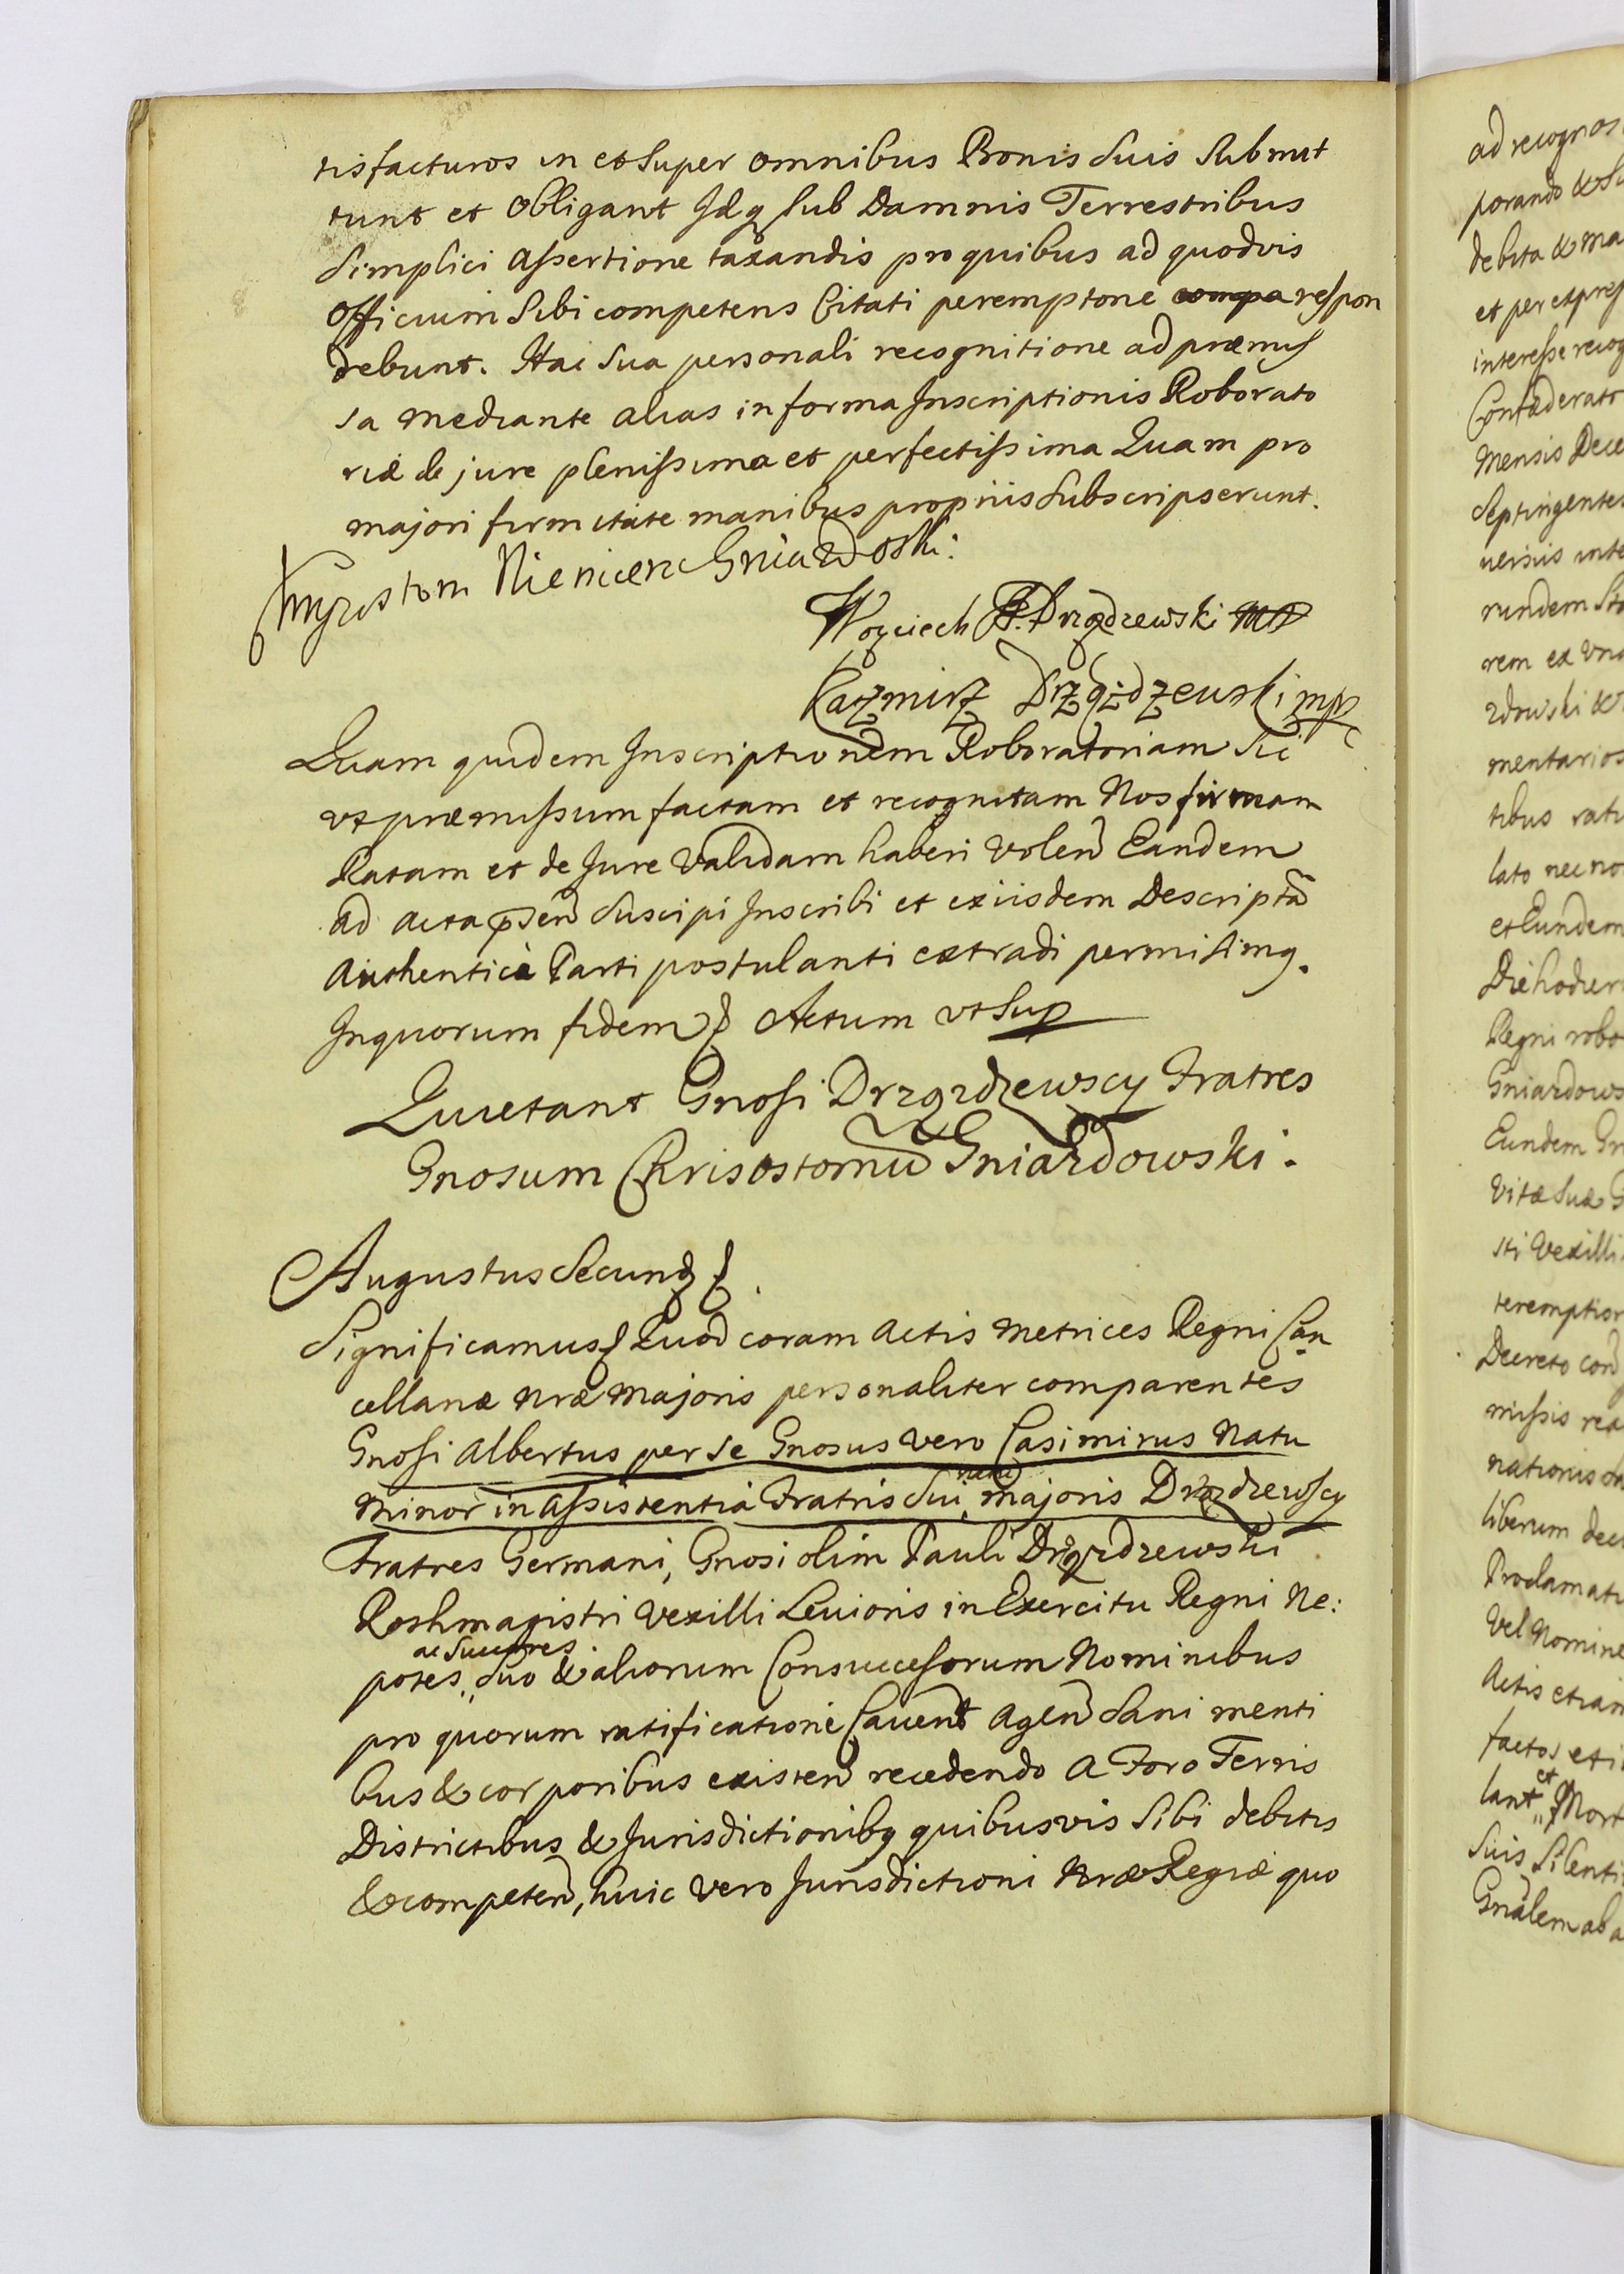 tisfacturos in et Super omnibus Bonis Suis Submit
tunt et Obligant Idq sub Damnis Terrestribus
Simplici Assertione taxandis pro quibus ad quodvis
Officium Sibi competens Citati peremptorie compa respon
debunt. Hac Sua personali recognitione ad præmis
sa mediante alias in forma Inscriptionis Roborato
riæ de jure plenissima et perfectissima Quam pro
majori firmitate manibus propriis Subscripserunt.
Gniazdoski.
Woyciech P. Drzązdzewski mp
Kazmirz Drzązdzewski mp
Quam quidem Inscriptionem Roboratoriam Sic
vt præmissum factam et recognitam Nos firmam
Ratam et de Jure Validam haberi Volen Eandem
ad acta psen Suscipi Inscribi et exiisdem Descripta
Authenticè Parti postulanti extradi permisimq.
Inquorum fidem & Actum vt Sup
Quietant Gnosi Drzązdzewscy Fratres
Gnosum Chrisostomu Gniazdowski.
Augustus Secundq &.
Significamus & Quod coram Actis Metrices Regni Can
cellariæ nræ Majoris personaliter comparentes
Gnosi Albertus per se Gnosus vero Casimirus Natu
Minor in Assistentia Fratris Sui natu majoris Drzązdzewscy
Fratres Germani, Gnosi olim Pauli Drzązdzewski
Rothmagistri Vexilli Leuioris in Exercitu Regni Ne:
potes ac Succores, Suo & aliorum Consuccessorum Nominibus
pro quorum ratificatione Cauent Agen Sani menti
bus & corporibus existen recedendo a Foro Terris
Districtibus & Jurisdictionibq quibusvis Sibi debitis
& competen, huic vero Jurisdictioni Nræ Regiæ quo
ad recognos
porando & Su
debita & ma
et per expres
interesse recog
Confæderat
Mensis Dece
Septingentes
uersis inte
rundem Sta
rem ex Vna
zdowski &
mentarios
tibus rati
lato nec no
et Eundem
Die hodiern
Regni robo
Gniazdows
Eundem Gn
Vitæ Suæ G
sti Vexilli
teremptior
Decreto con
missis rea
nationis
liberum dec
Proclamati
Vel Nomine
Actis etiam
factos et i
lant et Mort
Suis Silenti
Gnalem ab a